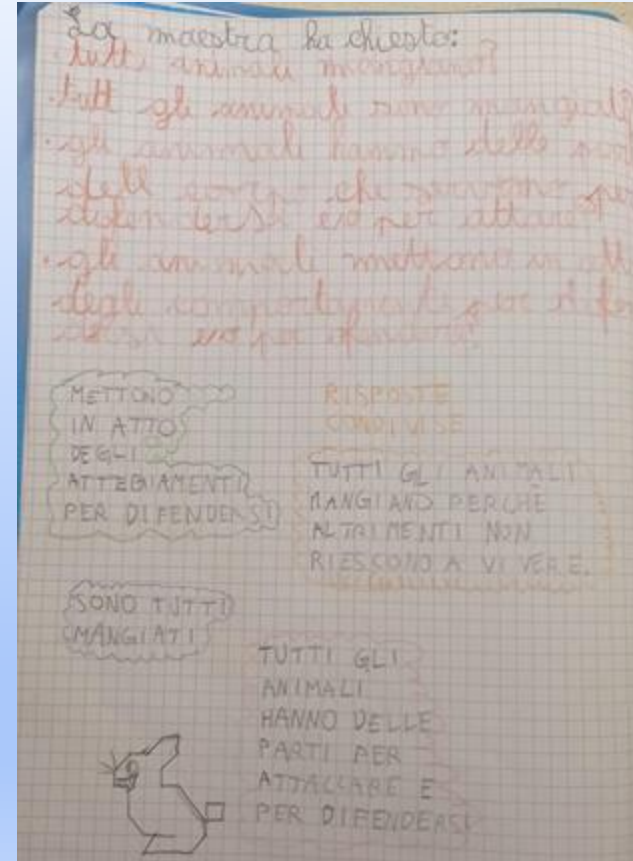 La maestra ha chiesto:
tutti animali mangiano?
tutt gli animali sono mangiati?
gli animali hanno delle
dell corpo che servono per
difendersi e/o per attac
gli animali mettono in att
degli comportamenti per difen
dersi e/o per
METTONO
IN ATTO
DEGLI
ATTEGIAMENTI
PER DIFENDERSI
RISPOSTE
CONDIVISE
TUTTI GLI ANIMALI
MANGIANO PERCHÈ
ALTRIMENTI NON
RIESCONO A VIVERE.
SONO TUTTI
MANGIATI
TUTTI GLI
ANIMALI
HANNO DELLE
PARTI PER
ATTACCARE E
PER DIFENDERSI